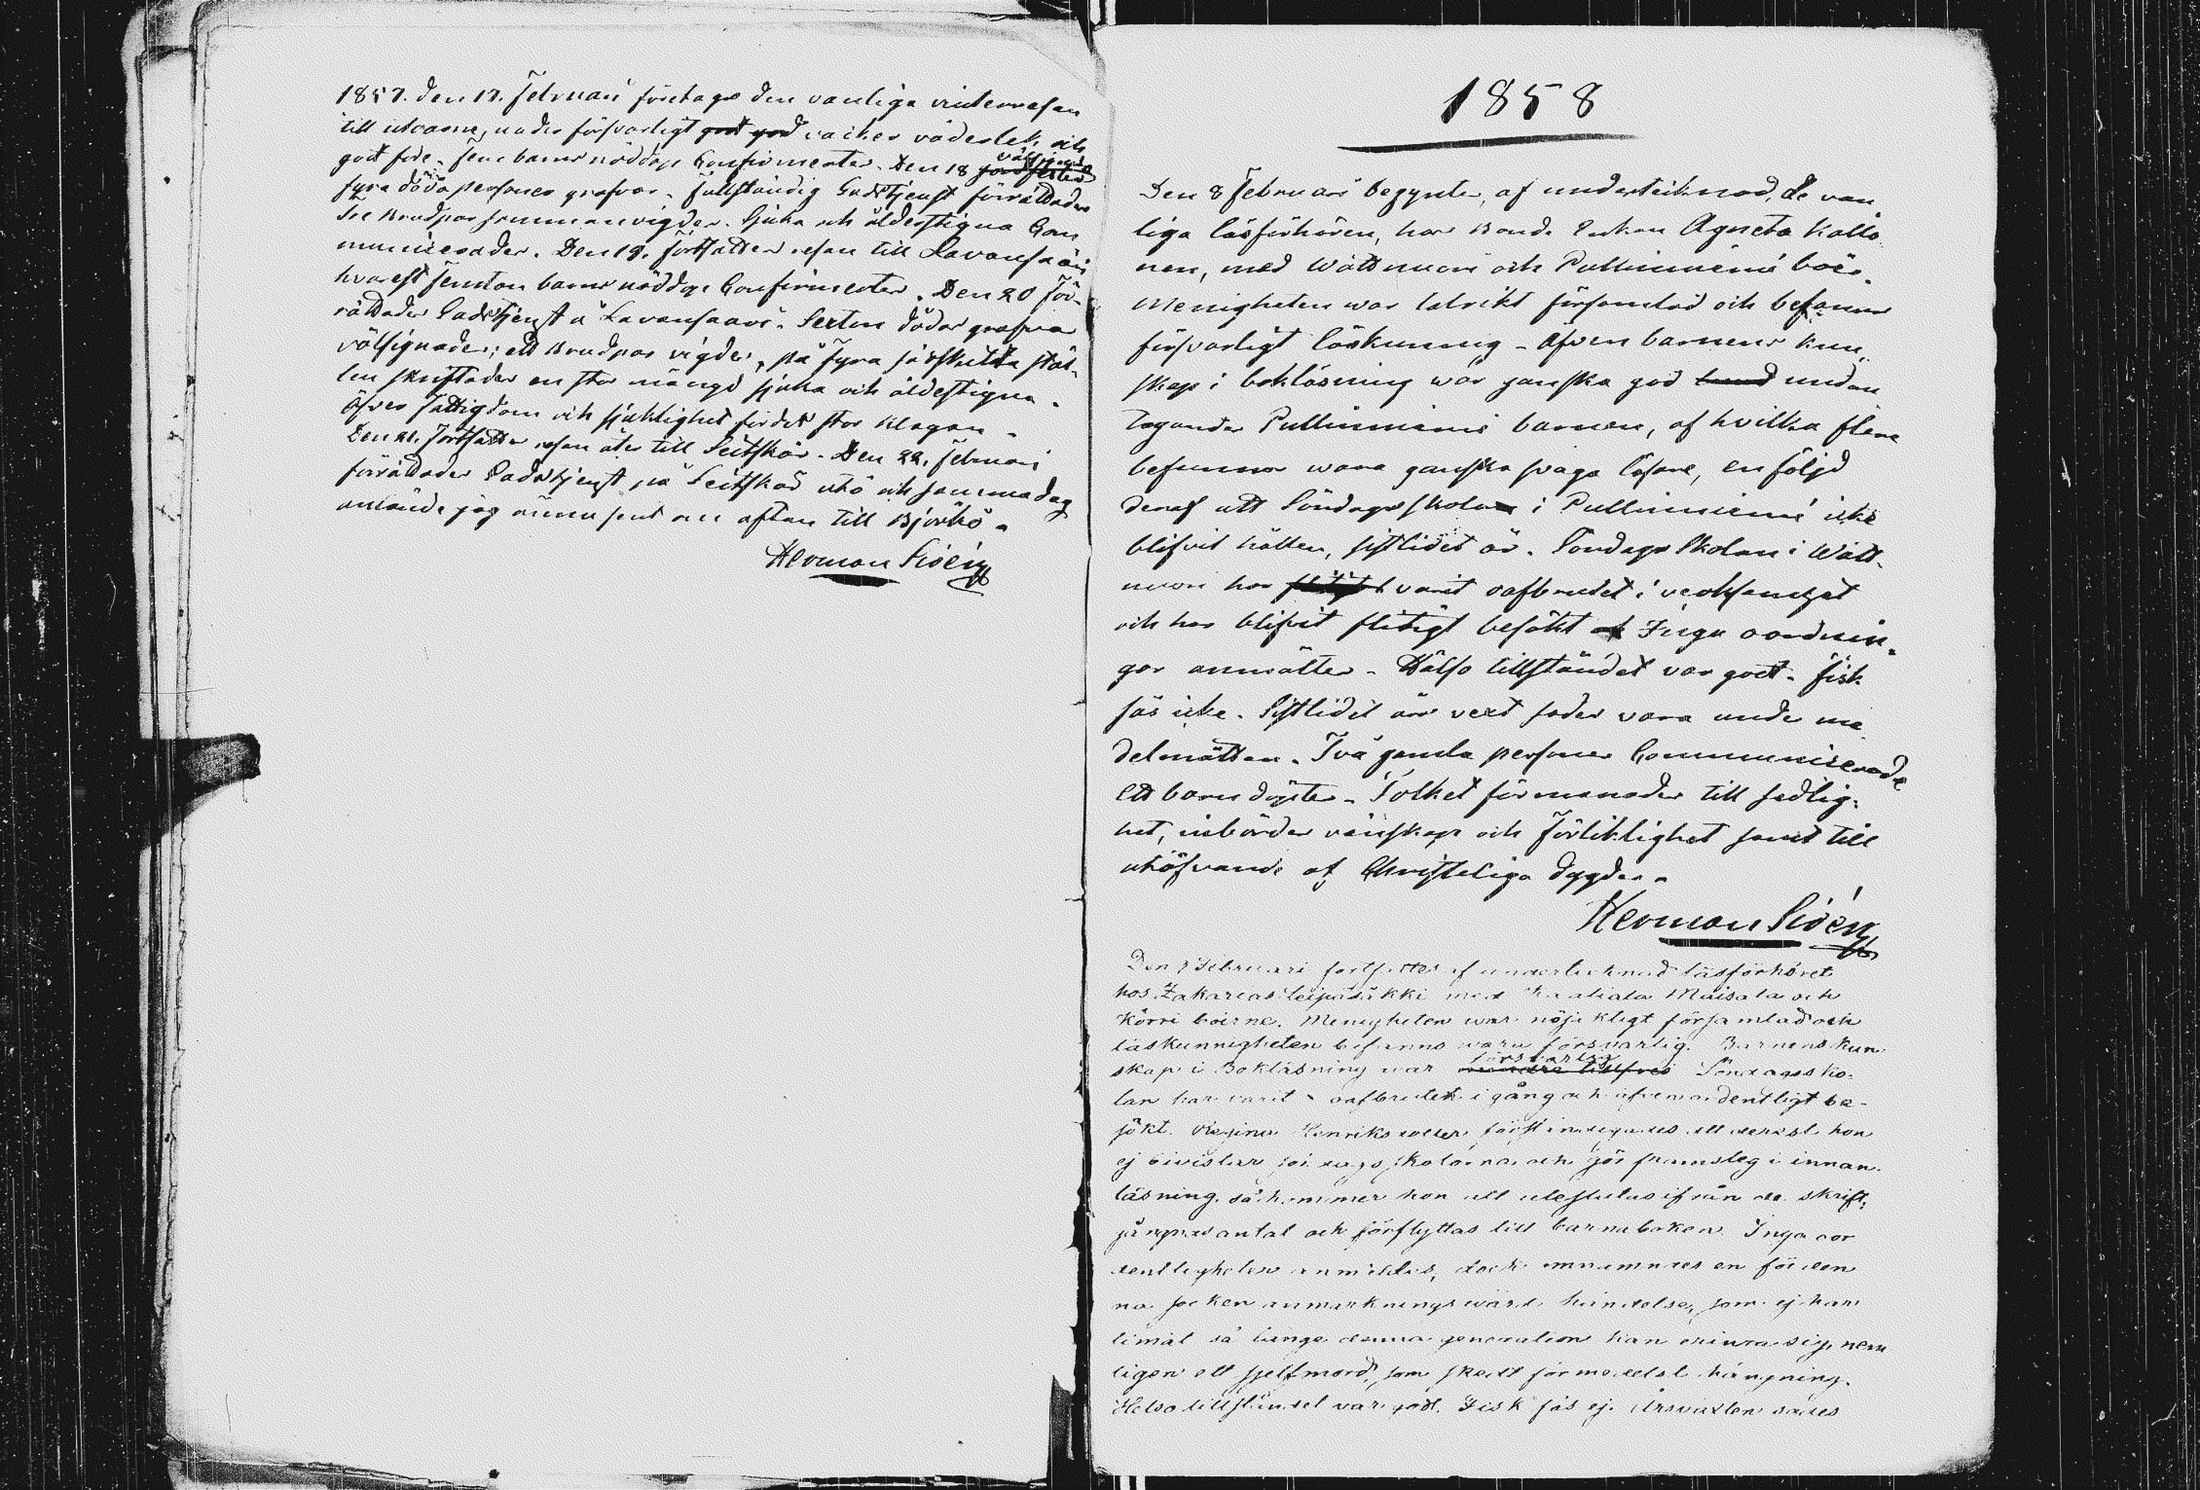 1857. den 17. Februari företags den vanliga vinterresan
till utöarne, under försvarligt god god vacker väderlek, och
godt före. Fem barns nöddop Confirmerater. Den 18 jordfästes välsignades
fyra döda personers grafvar. Fullständig Gudstjenst förrättades
Tre Brudpar sammanvigdes. Sjuka och ålderstigna Com
municerades. Den 19. fortsattes resan till Lavansaari
hvarest femton barns nöddop Confirmerates. Den 20 för-
rättades Gudstjenst å Lavansaari. Sexton dödas grafvar
välsignades; ett Brudpar vigdes, på fyra särskilta stäl-
len skriftades en stor mängd sjuka och åldestigna.
Öfver fattigdom och sjuklighet fördes stor klagan.
Den 21. fortsattes resan åter till Seitskär. Den 22. februari
förrättades Gudstjenst på Seitskär utö och samma dag
anlände jag ännu sent om aftan till Björkö.
Herman Sirén
1858
Den 8 Februari begyntes, af undertecknad, de van
liga läsförhören, hos Bonde Enkan Agneta Kallo
nen, med Wattnuori och Pullinniemi boer.
Menigheten war talrikt församlad och befanns
försvarligt läskunnig. Äfven barnens kun
skap i bokläsning war ganska god undan
tagandes Pullinniemi barnen, af hvilka flere
befunnos wara ganska svaga läsare, en följd
deraf att Söndagsskolan i Pullinniemi icke
blifvit hållen, sistlidet år. Söndags Skolan i Watt-
nuori har flitigt varit oafbrutet i verksamhet
och har blifvit flitigt besökt af Inga oordnin-
gar anmältes. Hälso tillståndet var godt. Fisk
fås icke. Sistlidet års vext sades vara unde me
delmåttan. Två gamla personer Communicerade
Ett barn döptes. Folket förmanades till sedlig-
het, inbördes vänskap och förliklighet samt till
utöfvande af Christeliga dygder.
Herman Sirén
Den 9 Februari fortsattes af undertecknad läsförhöret
hos Zakarias Leipäsäkki med Kaatiala Maisala och
Körri boerne. Menigheten war nöjaktigt församlad och
läskunnigheten befanns wara försvarlig. Barnens kun
skap i Bokläsning war mindre tillfreds försvarlig Söndagssko-
lan har varit oafbrutet i gång och äfven ordentligt be-
sökt. Regina Henriksdotter förständigades att derest hon
ej bivistar söndagsskolorna och gör framsteg i innan-
läsning, så kommer hon att uteslutas ifrån de skrift-
gångnas antal och förflyttas till barnaboken. Inga oor
dentligheter anmältes, dock omnämndes en för den
na socken anmärkningswärd händelse, som ej har
timat så länge denna generation kan erinra sig, nem
ligen ett sjelfmord, som skett förmedelst hängning.
Helso tillståndet var godt. Fisk fås ej. Årsvexten sades